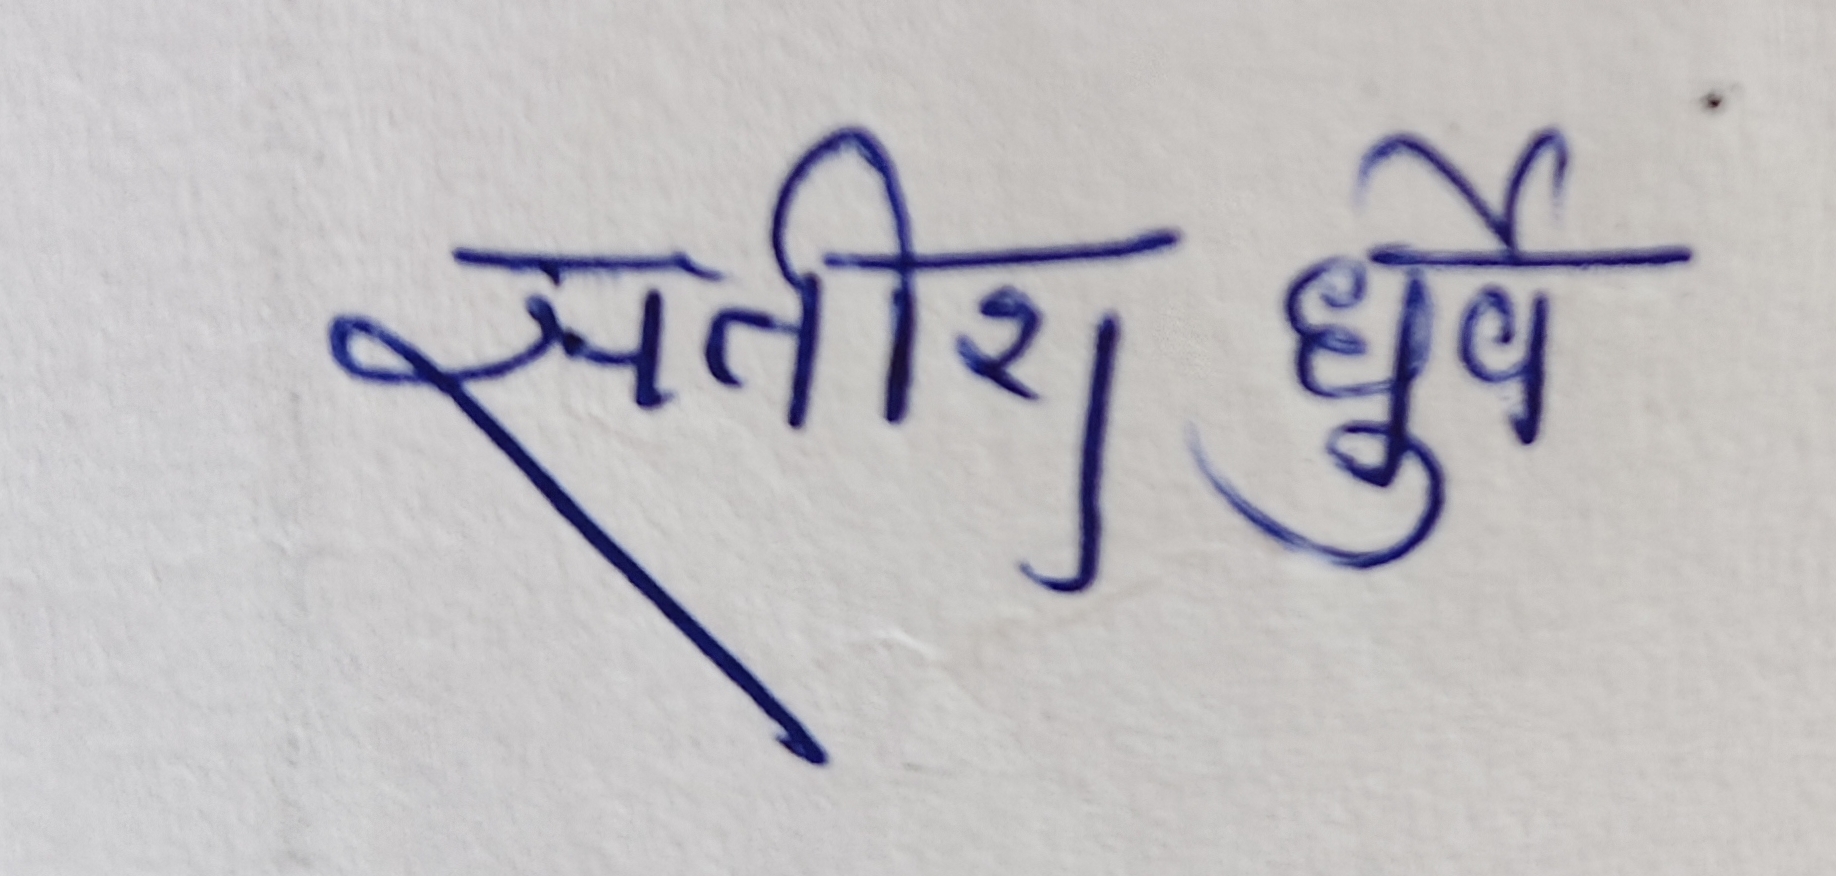 सतीश धुर्वे